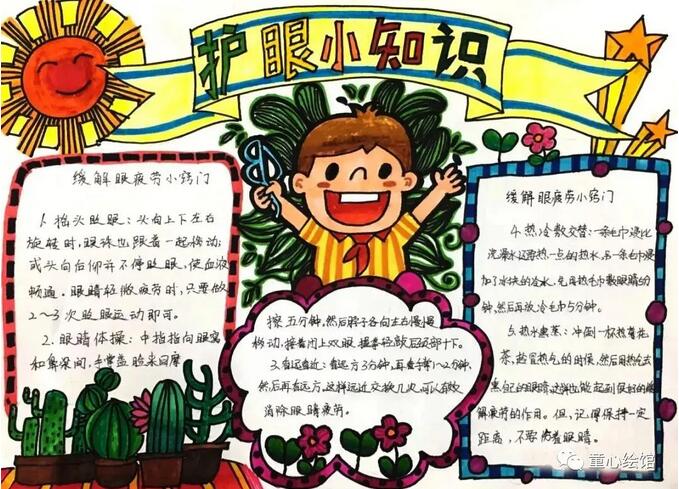 护眼小知识
缓解眼疲劳小窍门
1. 抬头眨眼：头向上下左右
旋转时，眼珠也跟着一起移动；
或头向后仰并不停眨眼，使血液
畅通。眼睛轻微疲劳时，只要做
2～3次眨眼运动即可。
2. 眼睛体操：中指指向眼窝
和鼻梁间，手掌盖脸来回摩
擦五分钟，然后脖子各向左右慢慢
移动，接着闭上双眼，握拳轻敲后颈部十下。
3. 看远看近：看远方3分钟，再看手掌1～2分钟，
然后再看远方，这样远近交换几次，可以有效
消除眼睛疲劳。
缓解眼疲劳小窍门
4. 热冷敷交替：一条毛巾浸比
洗澡水还要热一点的热水，另一条毛巾浸
加了冰块的冷水，先用热毛巾敷眼睛5分
钟，然后再放冷毛巾5分钟。
5. 热水熏蒸：冲倒一杯热菊花
茶，趁冒热气的时候，然后用热气去
熏自己的眼睛这样也能起到很好的缓
解疲劳的作用。但，记得保持一定
距离，不要烫着眼睛。
童心绘馆